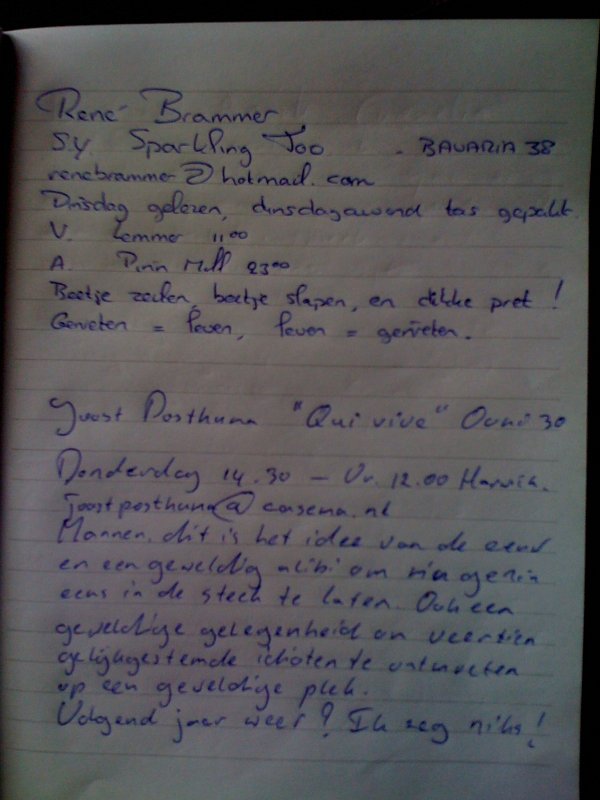 René Brammer
S.Y. Sparkling Too - BAVARIA 38
renebrammer@hotmail.com
Dinsdag gelezen, dinsdagavond tas gepakt.
V. Lemmer 11:00
A. Pinn Mill 23:00
Beetje zeilen, beetje slapen, en dikke pret!
Genieten = leven, leven = genieten.
Joost Posthuma "Qui vive" Ovni 30
Donderdag 14.30 — Vr. 12.00 Harwich.
joostposthuma@casema.nl
Mannen, dit is het idee van de eeuw
en een geweldig alibi om mijn gezin
eens in de steek te laten. Ook een
geweldige gelegenheid om veertien
gelijkgestemde idioten te ontmoeten
op een geweldige plek.
Volgend jaar weer? Ik zeg niks!